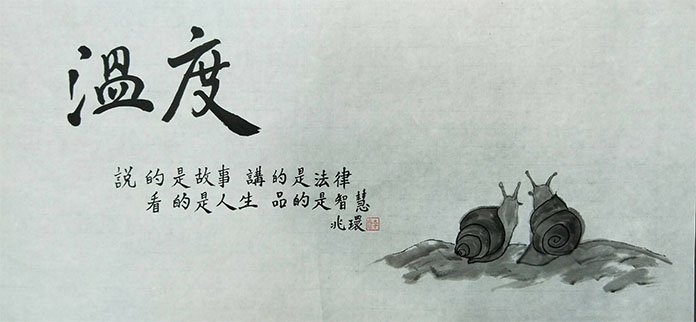 溫度
說的是故事 講的是法律
看的是人生 品的是智慧
兆環